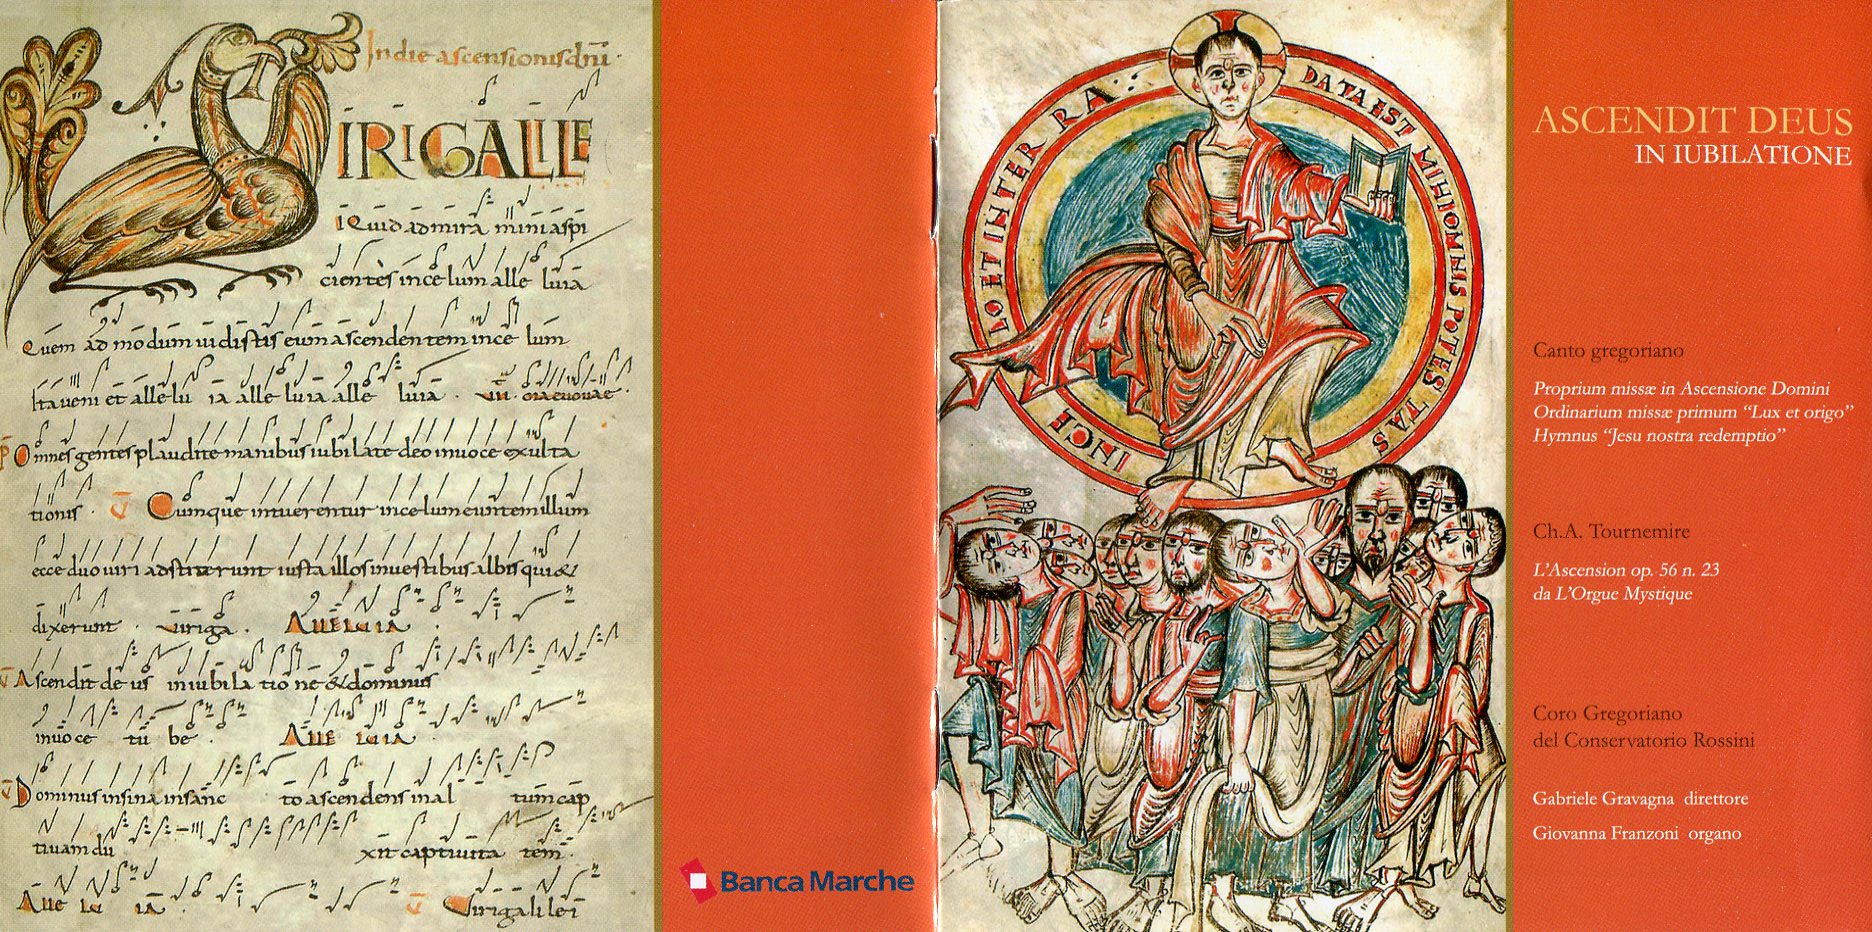 In die ascensionis dni.
VIRI GALILE
i Quid admira mini aspi
cientes in celum alle luia
Quem ad modum uidistis eum ascendentem in ce lum
Ita ueni et alle lu ia alle luia alle luia.
Omnes gentes plaudite manibus iubilate deo in uoce exulta
tionis. V Cumque intuerentur in celum euntem illum
ecce duo uiri astiterunt iusta illos in uestibus albis qui &
dixerunt. uiri ga. ALLELUIA
V Ascendit de us in iubi la tio ne & dominus
in uoce tu be. ALLE LUIA
V Dominus in sina in sanc to ascendens in al tum cap
tiuam du xit captiuita tem.
Alle lu ia V Viri galilei
Banca Marche
DATA EST MIHI OMNIS POTESTAS
IN CELO ET IN TERRA
ASCENDIT DEUS
IN IUBILATIONE
Canto gregoriano
Proprium missæ in Ascensione Domini
Ordinarium missæ primum “Lux et origo”
Hymnus “Jesu nostra redemptio”
Ch.A. Tournemire
L’Ascension op. 56 n. 23
da L’Orgue Mystique
Coro Gregoriano
del Conservatorio Rossini
Gabriele Gravagna direttore
Giovanna Franzoni organo